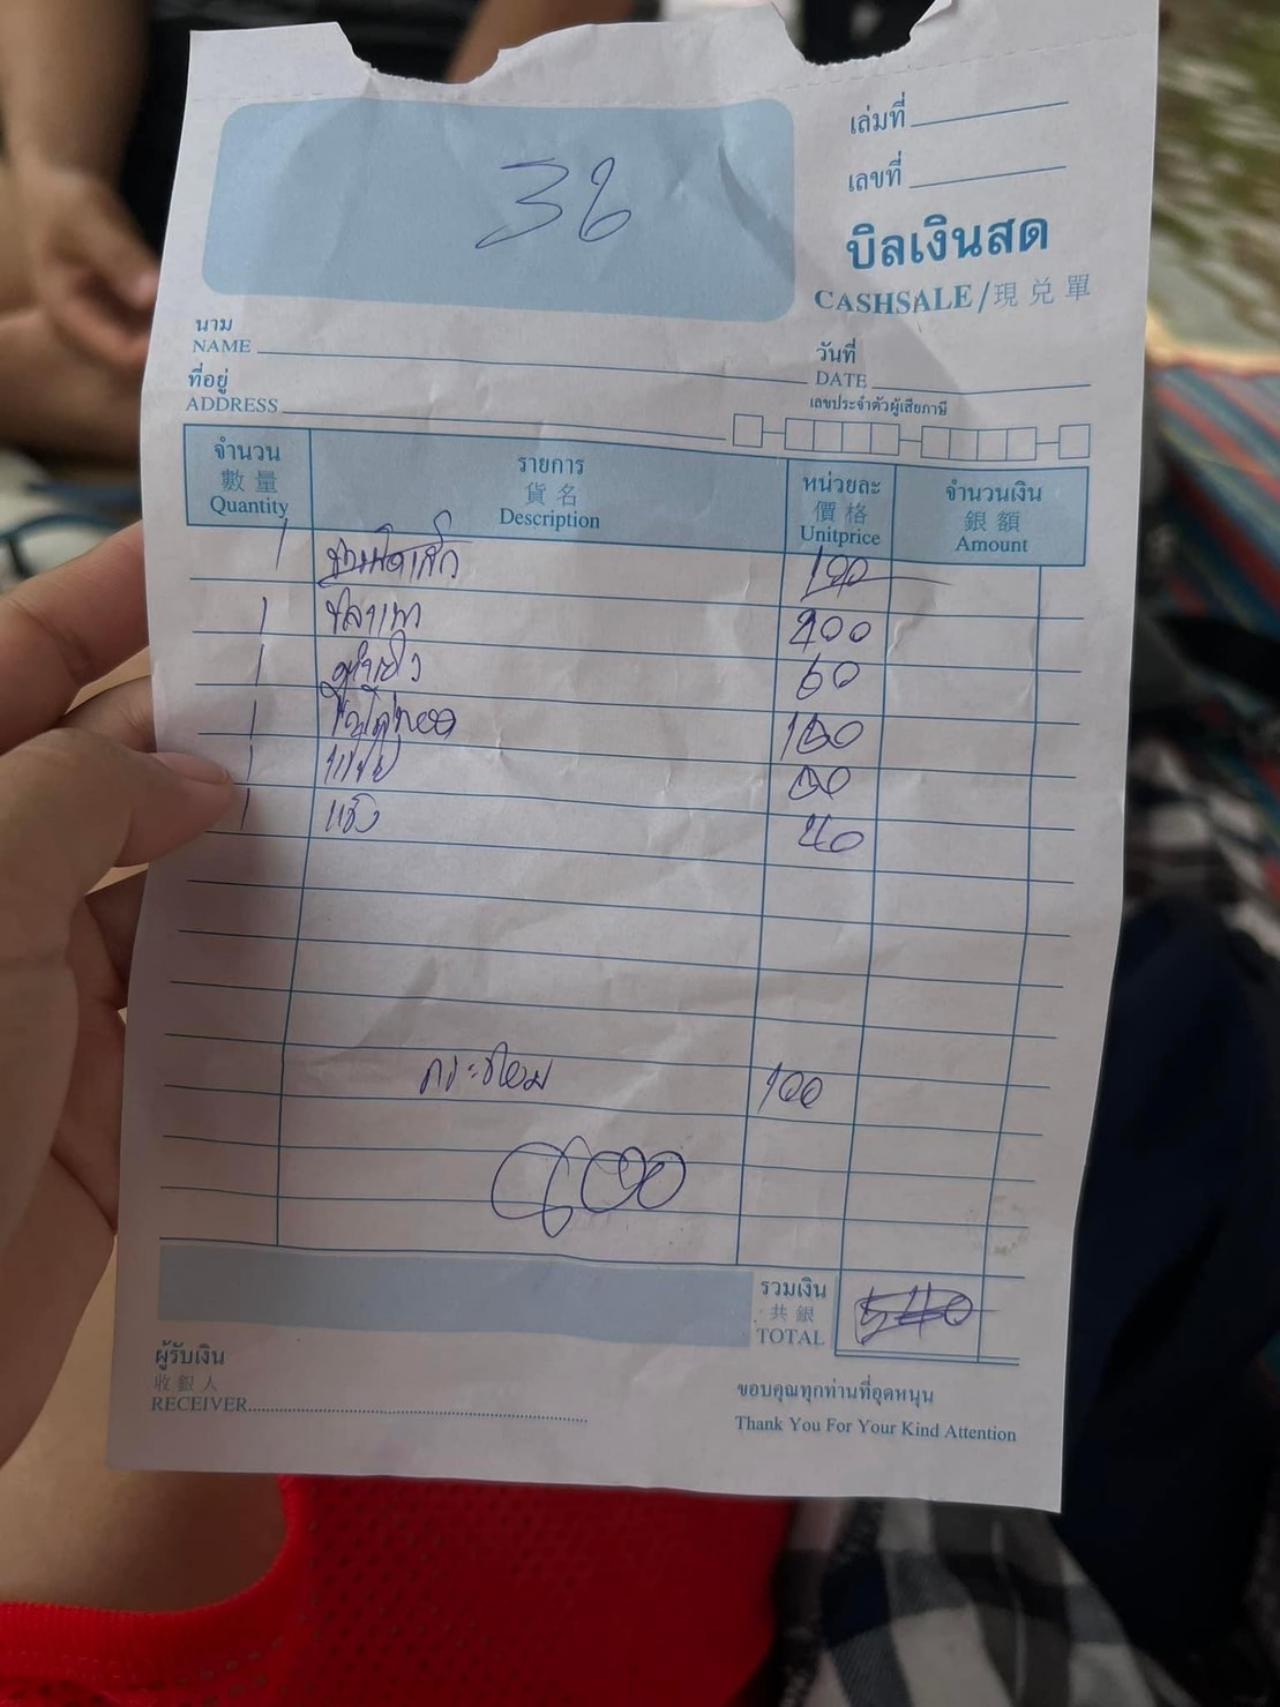 36
เล่มที่
เลขที่
บิลเงินสด
CASHSALE/現兌單
นาม
NAME
วันที่
DATE
ที่อยู่
ADDRESS
เลขประจำตัวผู้เสียภาษี
จำนวน 數量 Quantity
รายการ 貨名 Description
หน่วยละ 價格 Unitprice
จำนวนเงิน 銀額 Amount
1 100
1 ปลาเผา 200
1 60
1 ไข่ไก่ทอด
1
1 แข็ง 40
กระท่อม 100
600
รวมเงิน
共銀
TOTAL
540
ผู้รับเงิน
收銀人
RECEIVER
ขอบคุณทุกท่านที่อุดหนุน
Thank You For Your Kind Attention